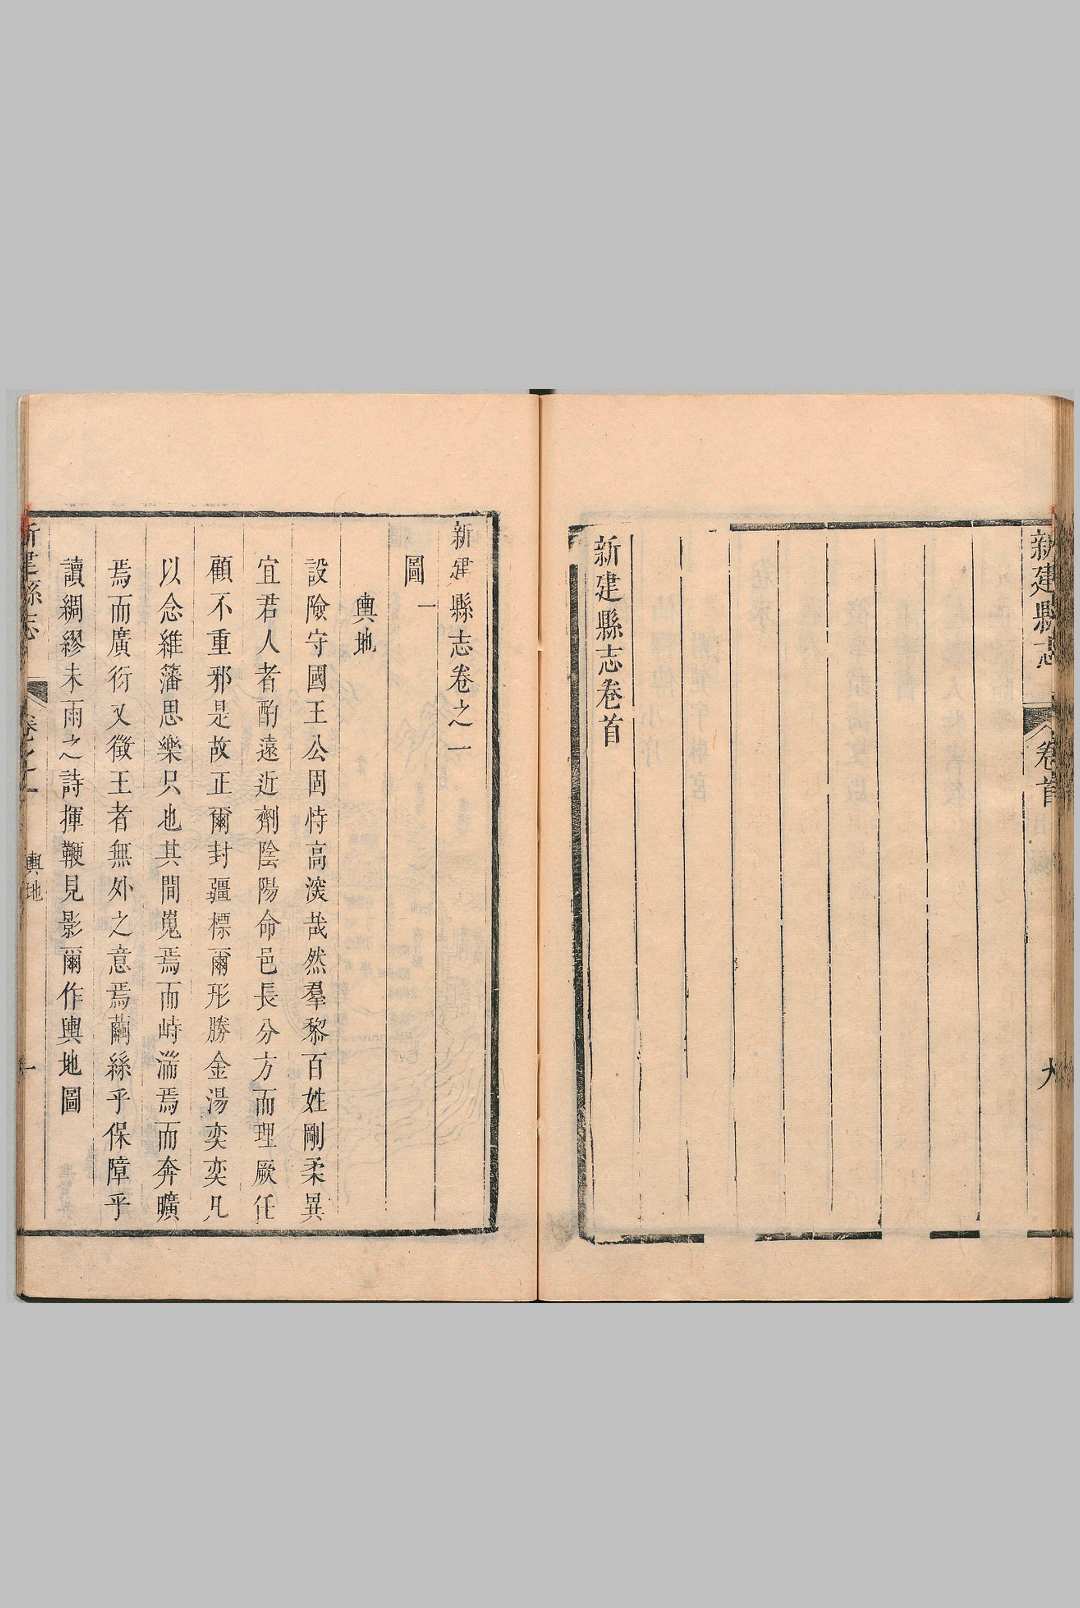 新建縣志
卷首
新建縣志卷首
新建縣志卷之一
圖一
輿地
設險守國王公固恃高深哉然羣黎百姓剛柔異
宜君人者酌遠近劑陰陽命邑長分方而理厥任
顧不重邪是故正爾封疆標爾形勝金湯奕奕凡
以念維藩思樂只也其間嵬焉而峙湍焉而奔曠
焉而廣衍又徵王者無外之意焉繭絲乎保障乎
讀綢繆未雨之詩揮鞭見影爾作輿地圖
新建縣志
卷之一
輿地
一